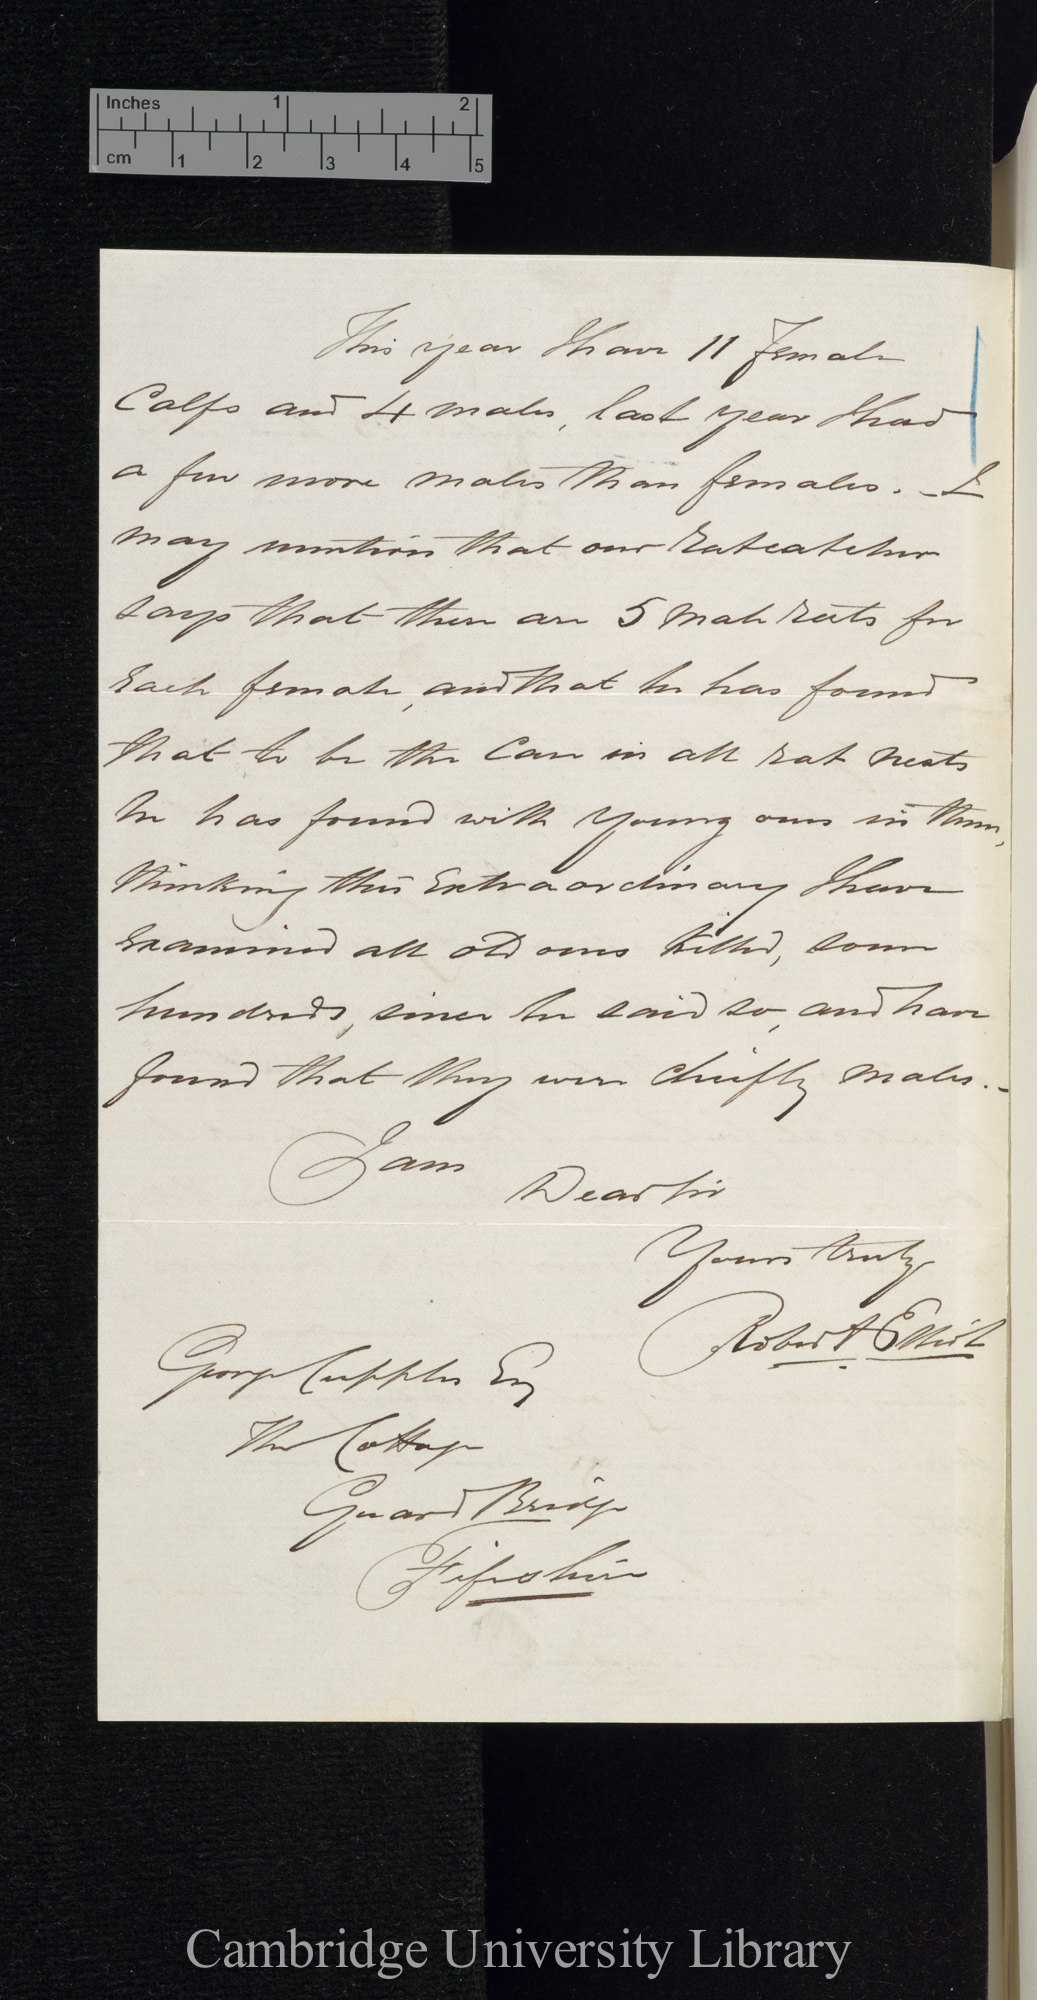 Inches 1 2
cm 1 2 3 4 5
This year I have 11 Female
Calfs and 4 males, last year I had
a few more males than females. - I
may mention that our Ratcatcher
says that there are 5 Male Rats for
Each female, and that he has found
that to be the Case in all Rat Nests
he has found with Young ones in them,
thinking this Extraordinary I have
Examined all old ones killed, some
hundreds, since he said so, and have
found that they were chiefly Males. -
I am
Dear Sir
Yours truly
Robert Elliot
George Cupples Esq
The Cottage
Guard Bridge
Fifeshire
Cambridge University Library